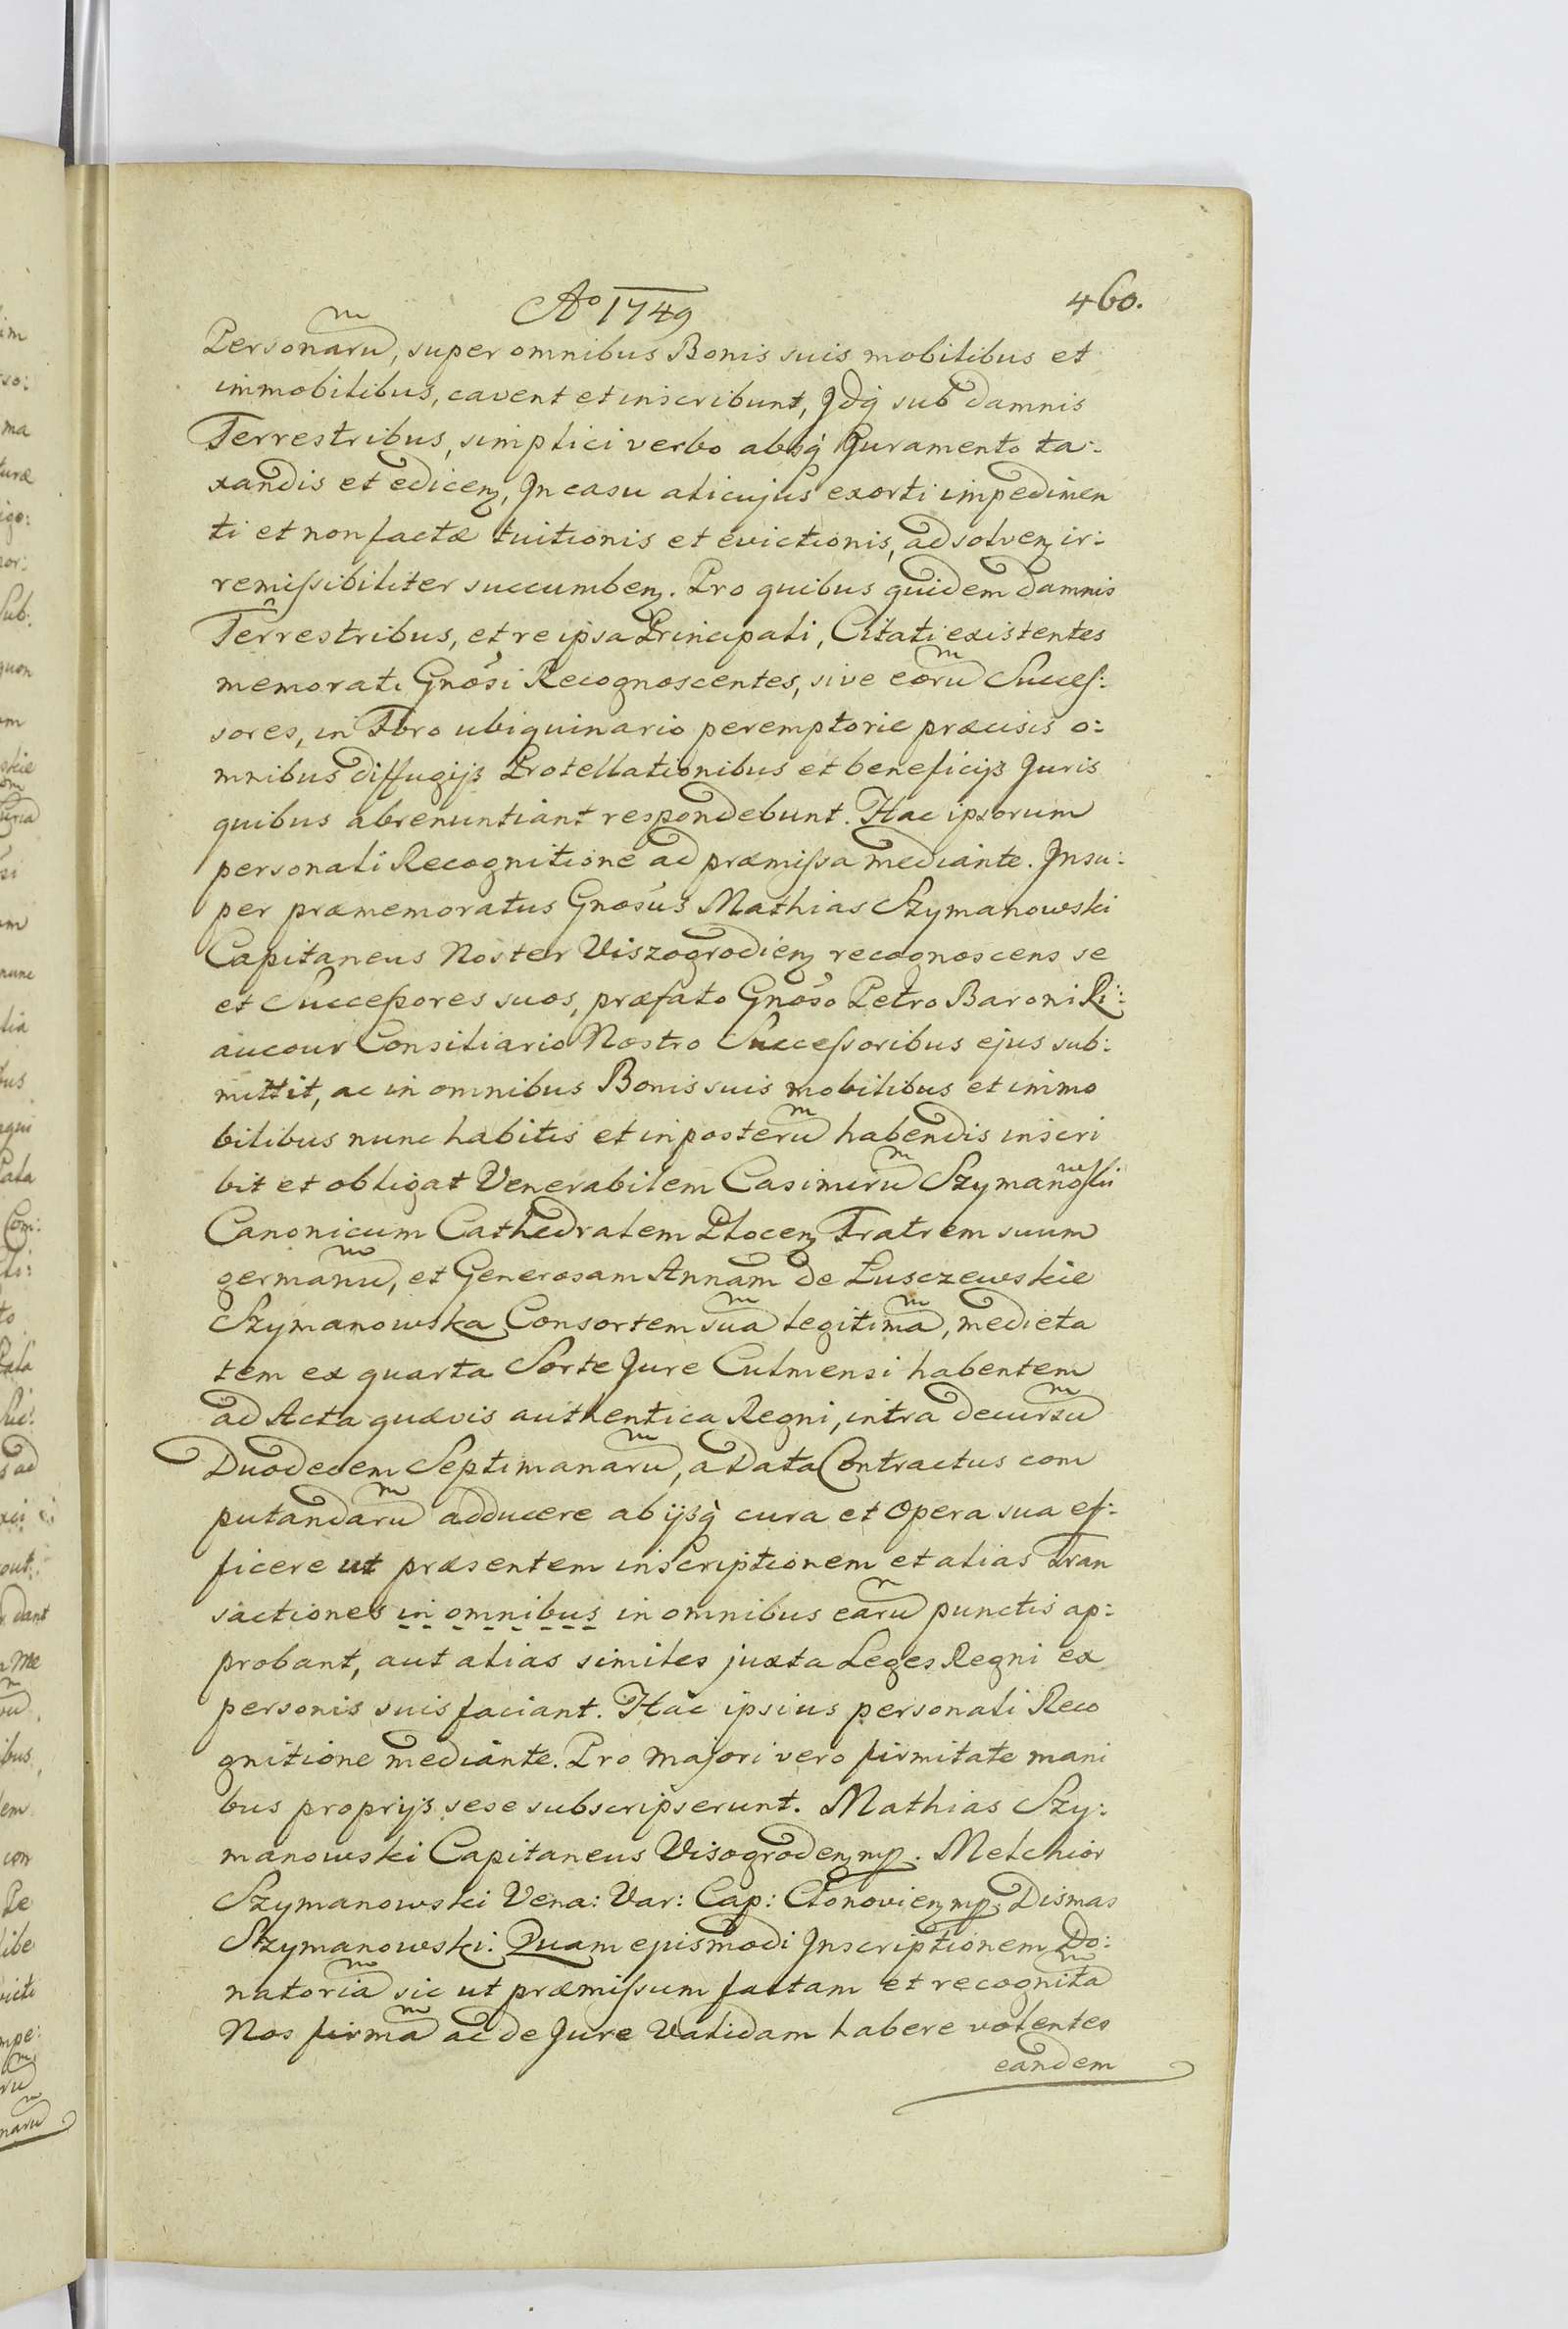 Aº 1749
460.
Personarũ, super omnibus Bonis suis mobilibus et
immobilibus, cavent et inscribunt, Idq́ sub damnis
Terrestribus, simplici verbo absq́ Juramento ta:
xandis et edicenȝ, In casu alicujus exorti impedimen
ti et non factæ tuitionis et evictionis, ad solvenȝ ir:
remissibiliter succumbenȝ. Pro quibus quidem damnis
Terrestribus, et re ipsa Principali, Citati existentes
memorati Gnosi Recognoscentes, sive eorũ Succes:
sores, in Foro ubiquinario peremptorie præcisis o:
mnibus diffugijs Protellationibus et beneficijs Juris
quibus abrenuntiant respondebunt. Hac ipsorum
personali Recognitione ad præmissa mediante. Insu:
per præmemoratus Gnosus Mathias Szymanowski
Capitaneus Noster Viszogrodienȝ recognoscens se
et Successores suos, præfato Gnoso Petro Baroni Ri:
aucour Consiliario Nostro Successoribus ejus sub:
mittit, ac in omnibus Bonis suis mobilibus et immo
bilibus nunc habitis et in posterũ habendis inscri
bit et obligat Venerabilem Casimirũ Szymanoski
Canonicum Cathedralem Plocenȝ Fratrem suum
germanũ, et Generosam Annam de Lusczewskie
Szymanowska Consortem suã legitimã, medieta
tem ex quarta Sorte Jure Culmensi habentem
ad Acta quævis authentica Regni, intra decursũ
Duodecem Septimanarũ, a Data Contractus com
putandarũ adducere ab ijsq́ cura et Opera sua ef:
ficere ut præsentem inscriptionem et alias Tran
sactiones in omnibus in omnibus earũ punctis ap:
probant, aut alias similes juxta Leges Regni ex
personis suis faciant. Hac ipsius personali Reco
gnitione mediante. Pro majori vero firmitate mani
bus proprijs sese subscripserunt. Mathias Szy:
manowski Capitaneus Visogrodenȝ mp. Melchior
Szymanowski Vena: Var: Cap: Clonovienȝ mp. Dismas
Szymanowski. Quam ejusmodi Inscriptionem Do:
natoriã sic ut præmissum factam et recognitã
Nos firmã ac de Jure Validam habere volentes
eandem